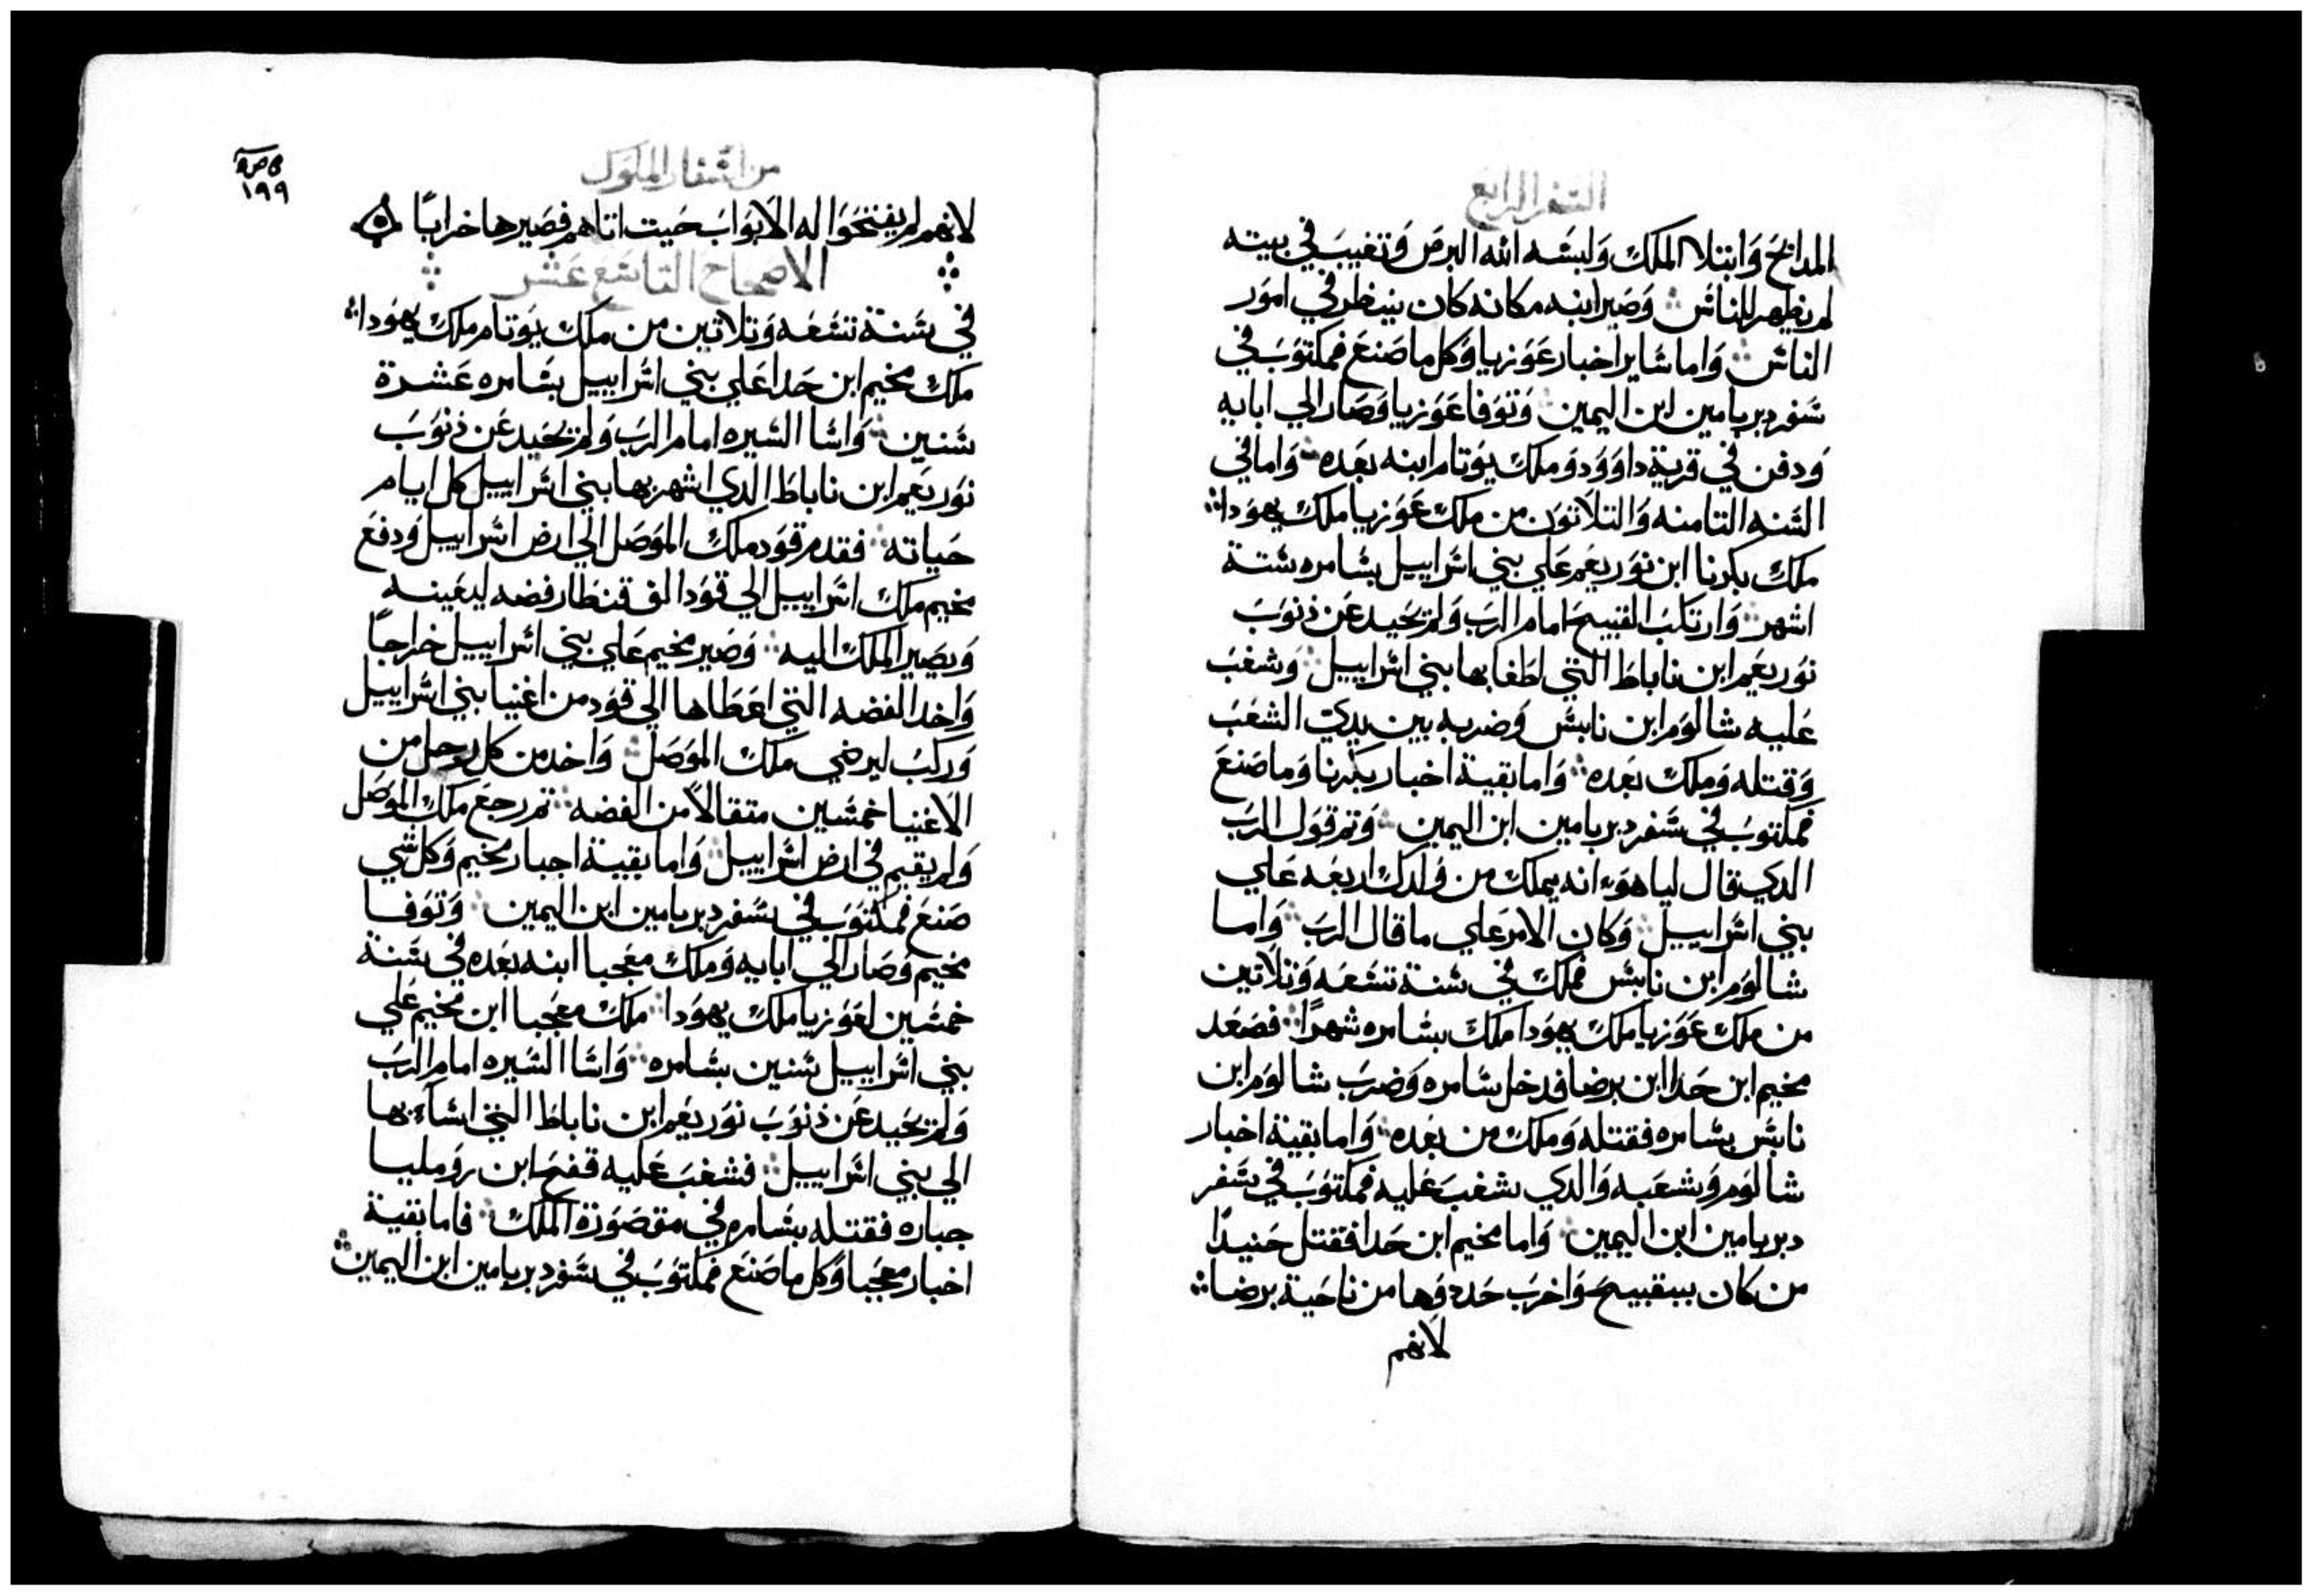 السفر الرابع
المدابح وَابتلا الملك وَلبسَه الله البرصَ وَتغيبَ في بيته
لم يظهر للناسَ وَصَير ابنه مكانه كان ينظر في امور
الناسَ وَاما سَاير اخبار عَوَزيا وَكل ما صَنعَ فمكتوَبَ في
سَفر دبريامين ابن اليمين وَتوَفا عَوَزيا وَصَار الي ابايه
وَدفن في قرية داوَوَد وَملك يوَتام ابنه بعَده وَاما في
السَنه التامنه وَالتلاتوَن من ملك عَوَزيا ملك يهوَدا
ملك بكرنا ابن نوَريعَم عَلي بني اسَراييل بسَامره سَتة
اشهر وَارتكبَ القبيحَ امام الربَ وَلم يحَيد عَن ذنوَبَ
نوَريعَم ابن ناباطَ التي لطَفا بها بني اسَراييل وَشغبَ
عَليه شالوَم ابن نابسَ وَضربه بين يدي الشعَبَ
وَقتله وَملك بعَده وَاما بقية اخبار بكرنا وَما صَنعَ
فمكتوبَ في سَفر دبريامين ابن اليمين وَتم قوَل الربَ
الدي قال لياهوَ انه يملك من وَلدك اربعَه عَلي
بني اسَراييل وَكان الامر عَلي ما قال الربَ وَاما
شالوَم ابن نابسَ فملك في سَنة تسَعَه وَتلاتين
من ملك عَوَزيا ملك يهوَدا ملك بسَامره شهرًا فصَعَد
مخيم ابن حَدا ابن برضا فدخل سَامره وَضربَ شالوَم ابن
نابسَ بسَامره فقتله وَملك من بعَده وَاما بقية اخبار
شالوَم وَشغبه وَالدي شغبَ عَليه فمكتوَبَ في سَفر
دبريامين ابن اليمين وَاما مخيم ابن حَدا فقتل حَنيدًا
من كان ببقبيح وَاخربَ حَدوَدها من ناحَية برضا
لانهم
من اسَفار الملوَك
١٩٩
لانهم لم يفتحَوَا له الابوَابَ حَيت اتاهم فصَيرها خرابًا
الاصحاحَ التاسَع عَشر
في سَنة تسَعَه وَتلاتين من ملك يوَتام ملك يهوَدا
ملك مخيم ابن حَدا عَلي بني اسَراييل بسَامره عَشرة
سَنين وَاسَا السَيره امام الربَ وَلم يحَيد عَن ذنوَبَ
نوَريعَم ابن ناباطَ الدي اشهر بها بني اسَراييل كل ايام
حَياته فقدم قوَد ملك الموَصَل الي ارض اسَراييل وَدفعَ
مخيم ملك اسَراييل الي قوَد الف قنطَار فضه ليعَينه
وَيصَير الملك اليه وَصَير مخيم عَلي بني اسَراييل خراجاً
وَاخد الفضه التي اعَطَاها الي قوَد من اغنيا بني اسَراييل
وَركبَ ليرضي ملك الموَصَل وَاخد من كل رجل من
الاغنيا خمسَين متقالاً من الفضه تم رجعَ ملك الموَصَل
وَلم يقيم في ارض اسَراييل وَاما بقية اخبار مخيم وَكل شي
صَنعَ فمكتوَبَ في سَفر دبريامين ابن اليمين وَتوَفا
مخيم وَصَار الي ابايه وَملك معَجبا ابنه بعَده في سَنة
خمسَين لعَوَزيا ملك يهوَدا ملك معَجبا ابن مخيم عَلي
بني اسَراييل سَنين بسَامره وَاسَا السَيره امام الربَ
وَلم يحَيد عَن ذنوَبَ نوَريعَم ابن ناباطَ التي اسَاء بها
الي بني اسَراييل فشغبَ عَليه قفحَ ابن روَمليا
جباره فقتله بسَامره في مقصَوَرة الملك فاما بقية
اخبار معَجبا وَكل ما صَنعَ فمكتوَبَ في سَفر دبريامين ابن اليمين